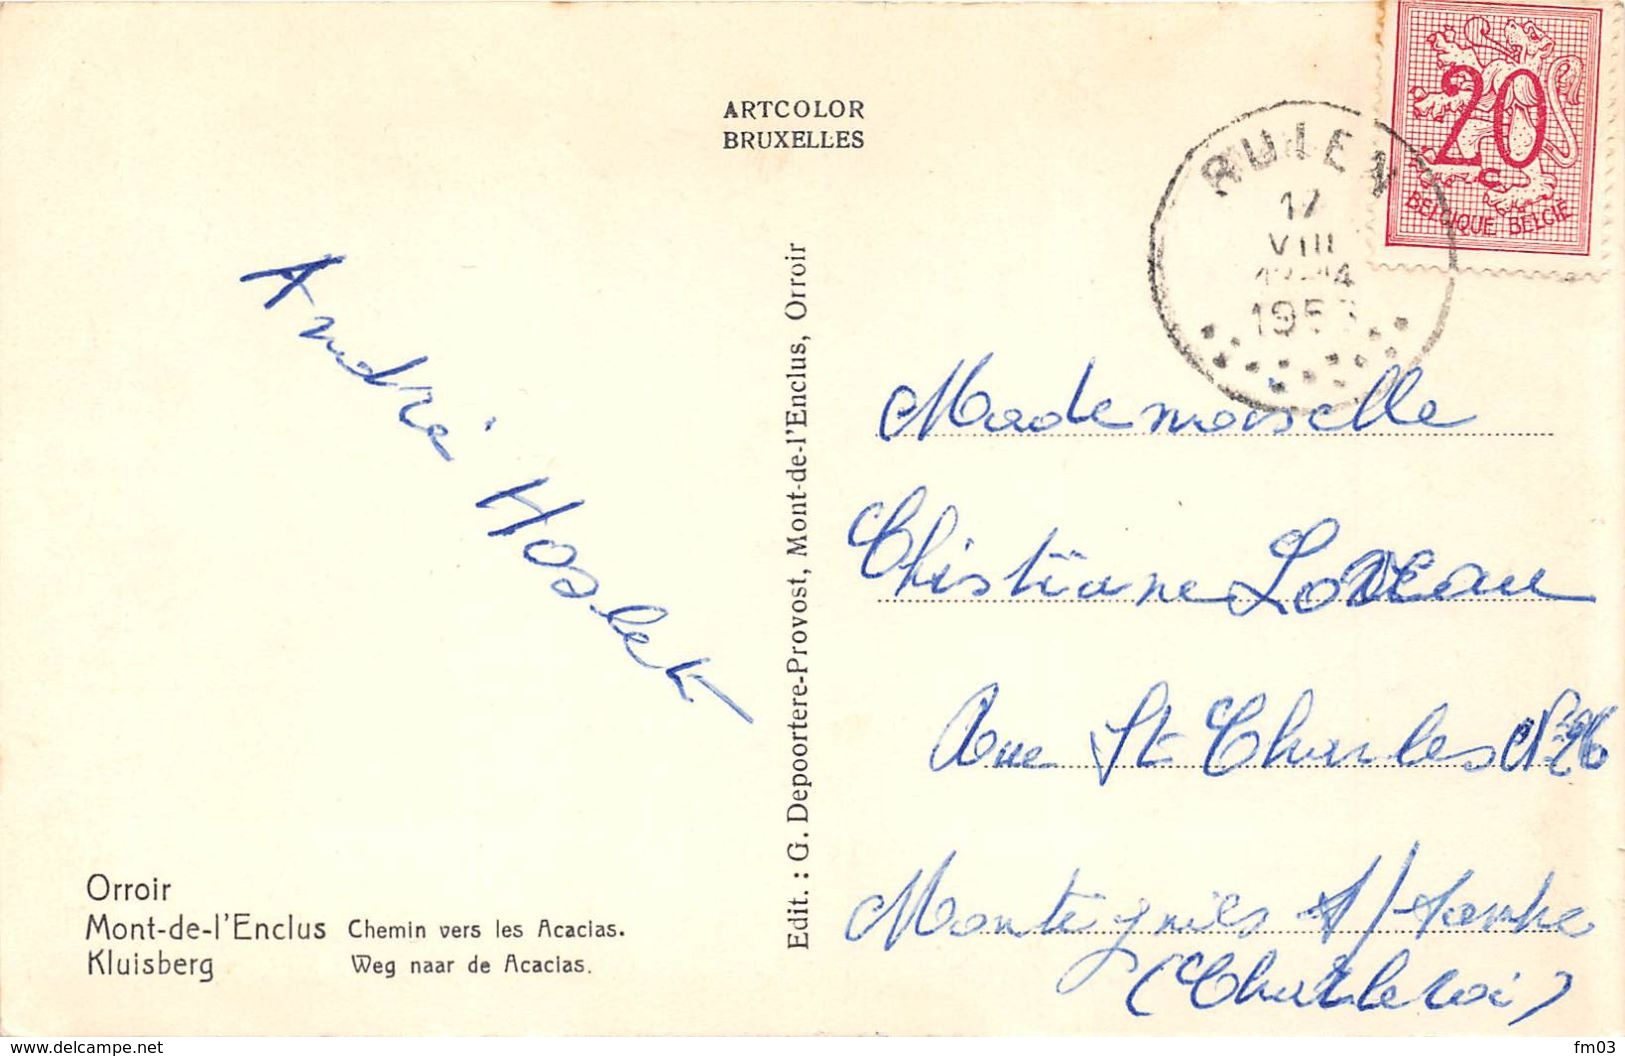 ARTCOLOR
BRUXELLES
RUIEN
17
VIII
-14
20
C
BELGIQUE BELGIË
André Hoslet
Edit. : G. Depoortere-Provost, Mont-de-l'Enclus, Orroir
Mademoiselle
Christiane Loveau
Rue St Charles N° 26
Montignies s/ Sambre
(Charleroi)
Orroir
Mont-de-l'Enclus Chemin vers les Acacias.
Kluisberg Weg naar de Acacias.
www.delcampe.net
fm03